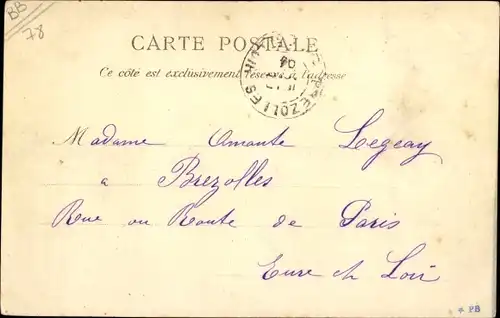 BB
78
CARTE POSTALE
Ce côté est exclusivement réservé à l'adresse
BREZOLLES
04
Madame Amante Legeay
a Brezolles
Rue ou Route de Paris
Eure et Loir
* PB